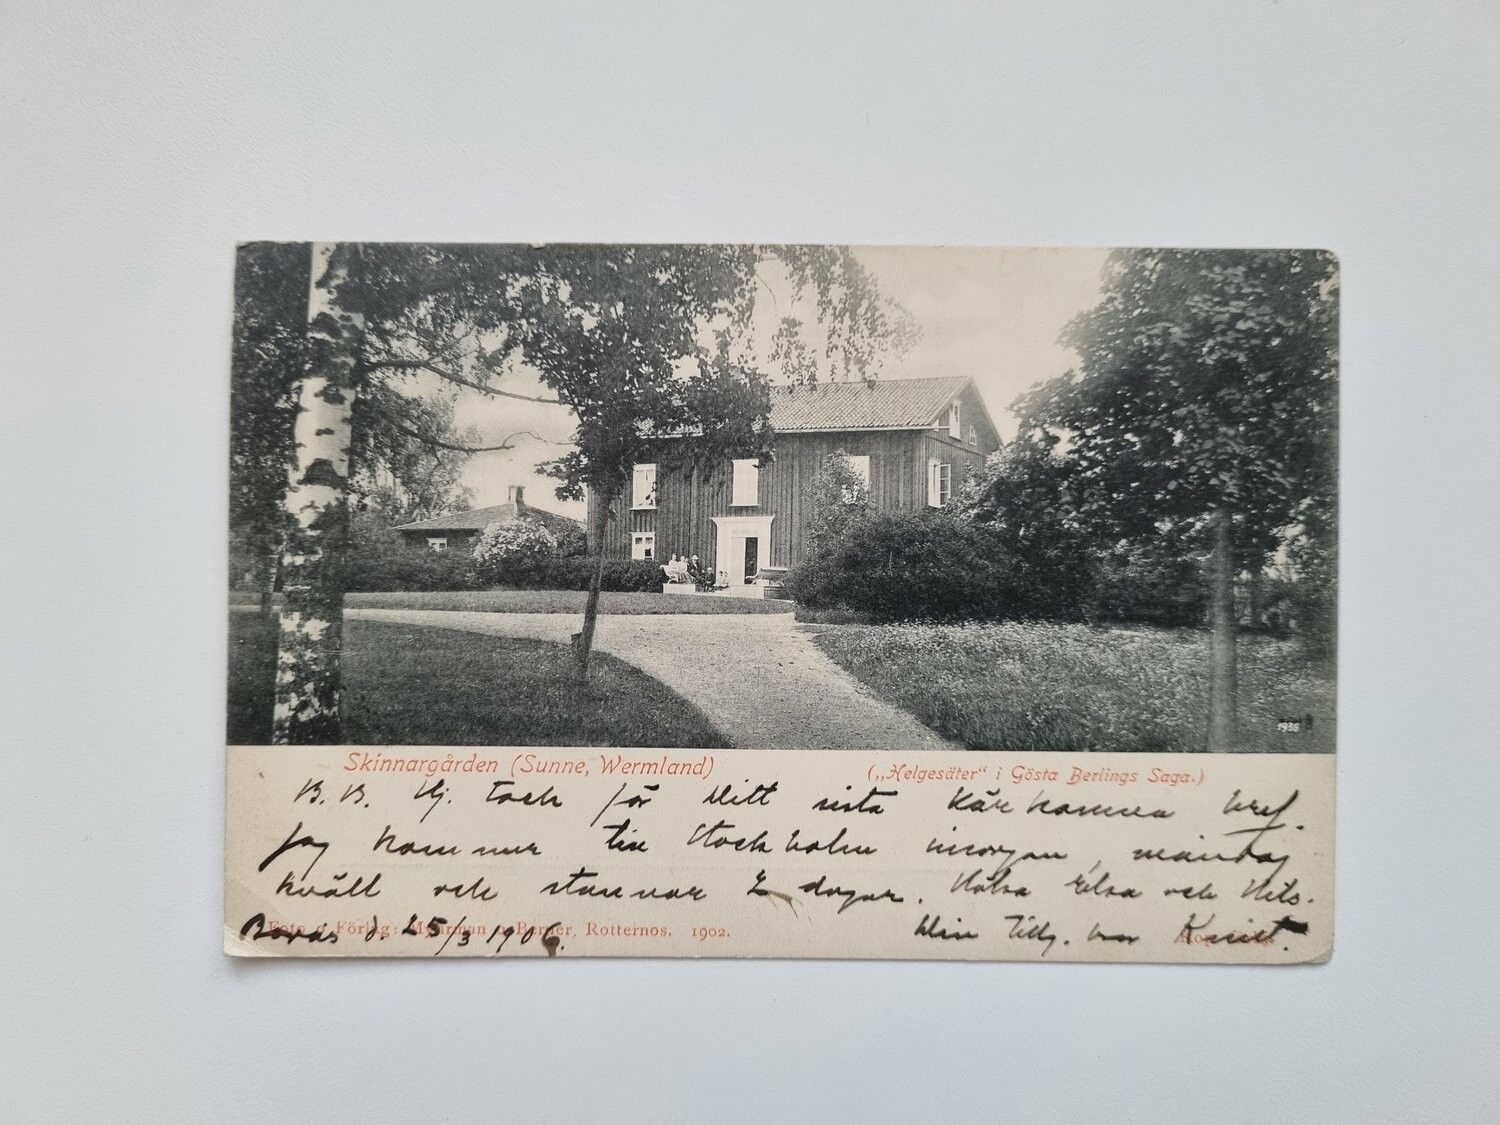 1936
Skinnargården (Sunne, Wermland)
(„Helgesäter“ i Gösta Berlings Saga.)
B. B. Hj. tack för Ditt sista kärkomna bref.
Jag kommer till Stockholm imorgon, måndag
kväll och stannar 2 dagar. Hälsa Elsa och Nils.
Borås d. 25/3 1906. Din Tillg. bror Knut.
Foto o. Förlag: Myhrman o. Berner, Rotternos. 1902.